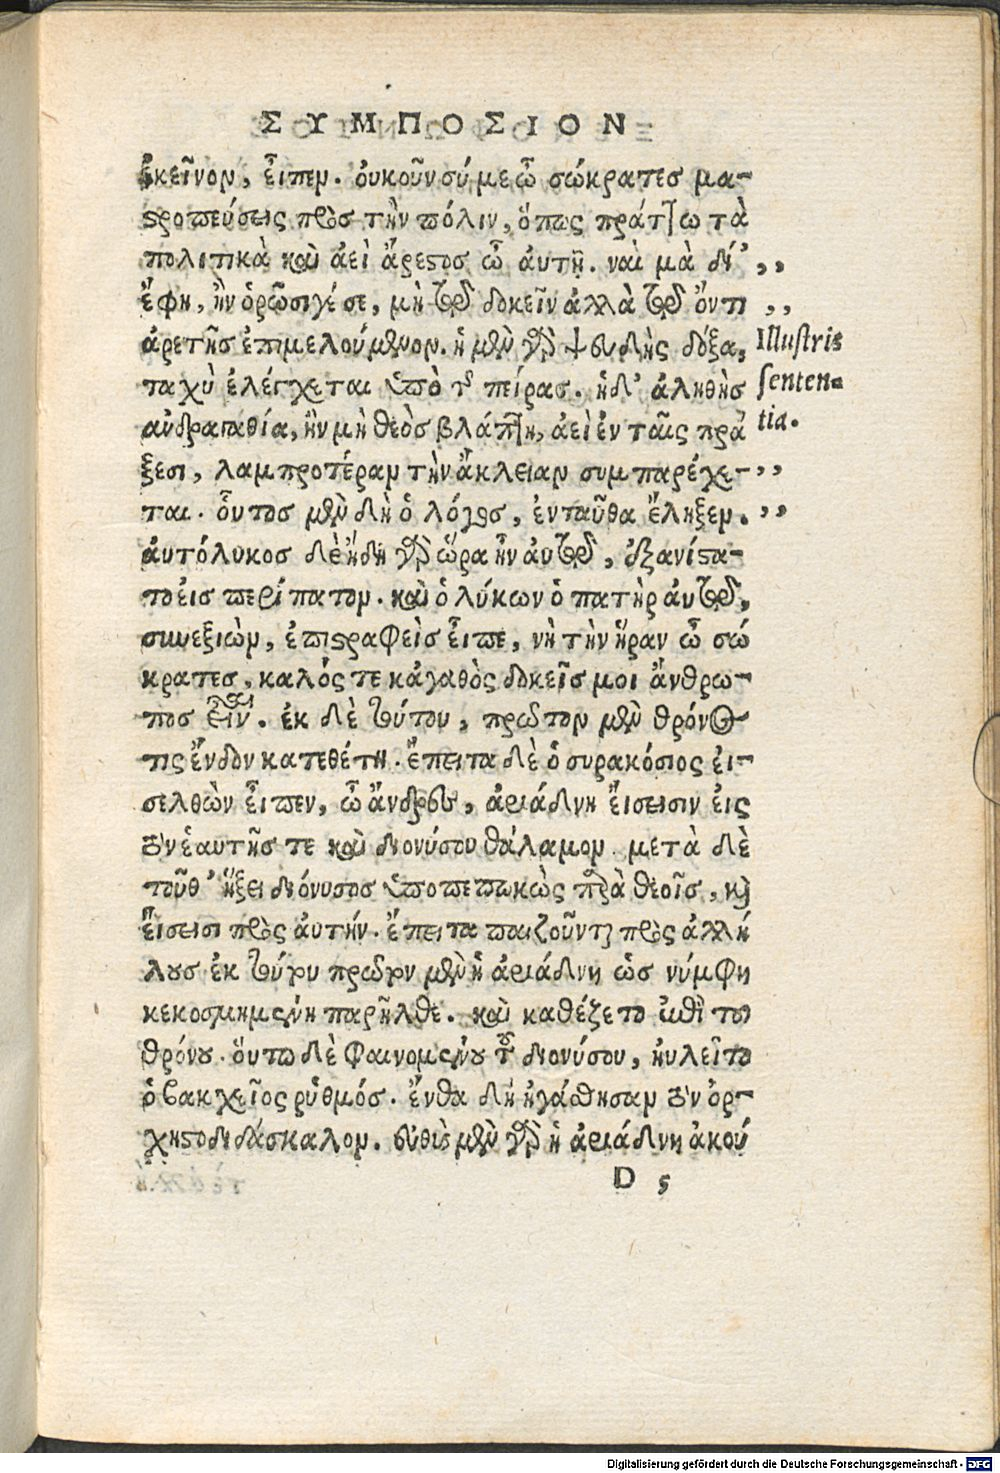 ΣΥΜΠΟΣΙΟΝ
ἐκεῖνον, εἶπεν. ὀυκοῦν σύ με ὦ σώκρατες μα-
στροπεύσεις πρὸς τὴν πόλιν, ὅπως πράττω τὰ
πολιτικὰ καὶ ἀεὶ ἄρεστος ὦ ἀυτῇ. ναὶ μὰ δί’ ,,
ἔφη, ἢν ὁρῶσι γέ σε, μὴ τῷ δοκεῖν ἀλλὰ τῷ ὄντι ,,
ἀρετῆς ἐπιμελούμενον. ἡ μὲν γὰρ ψευδὴς δόξα, Illustris
ταχὺ ἐλέγχεται ὑπὸ τῆς πείρας. ἡ δ’ ἀληθὴς senten=
ἀνδραγαθία, ἢν μὴ θεὸς βλάπτῃ, ἀεὶ ἐν ταῖς πρά tia.
ξεσι, λαμπροτέραν τὴν ἄκλειαν συμπαρέχε- ,,
ται. οὗτος μὲν δὴ ὁ λόγος, ἐνταῦθα ἔληξεν. ,,
ἀυτόλυκος δὲ ἤδη γὰρ ὥρα ἦν ἀυτῷ, ἐξανίστα-
το εἰς περίπατον. καὶ ὁ λύκων ὁ πατὴρ ἀυτῷ,
συνεξιὼν, ἐπιστραφεὶς εἶπε, νὴ τὴν ἥραν ὦ σώ
κρατες, καλός τε κἀγαθὸς δοκεῖς μοι ἄνθρω-
πος εἶναι. ἐκ δὲ τούτου, πρῶτον μὲν θρόνος
τις ἔνδον κατεθέτη. ἔπειτα δὲ ὁ συρακόσιος ἐι-
σελθὼν εἶπεν, ὦ ἄνδρες, ἀριάδνη ἔισεισιν ἐις
τὸν ἑαυτῆς τε καὶ διονύσου θάλαμον. μετὰ δὲ
τοῦθ’ ἥξει διόνυσος ὑποπεπωκὼς παρὰ θεοῖς, καὶ
ἔισεισι πρὸς ἀυτήν. ἔπειτα παιζοῦνται πρὸς ἀλλή
λους ἐκ τούτου πρῶτον μὲν ἡ ἀριάδνη ὡς νύμφη
κεκοσμημένη παρῆλθε. καὶ καθέζετο ἐπὶ τοῦ
θρόνου. ὅυτω δὲ φαινομένου τοῦ διονύσου, ἠυλεῖτο
ὁ βακχεῖος ῥύθμός. ἔνθα δὴ ἠγάσθησαν τὸν ὀρ-
χηστοδιδάσκαλον. ἐυθὺς μὲν γὰρ ἡ ἀριάδνη ἀκού
D 5
Digitalisierung gefördert durch die Deutsche Forschungsgemeinschaft - DFG